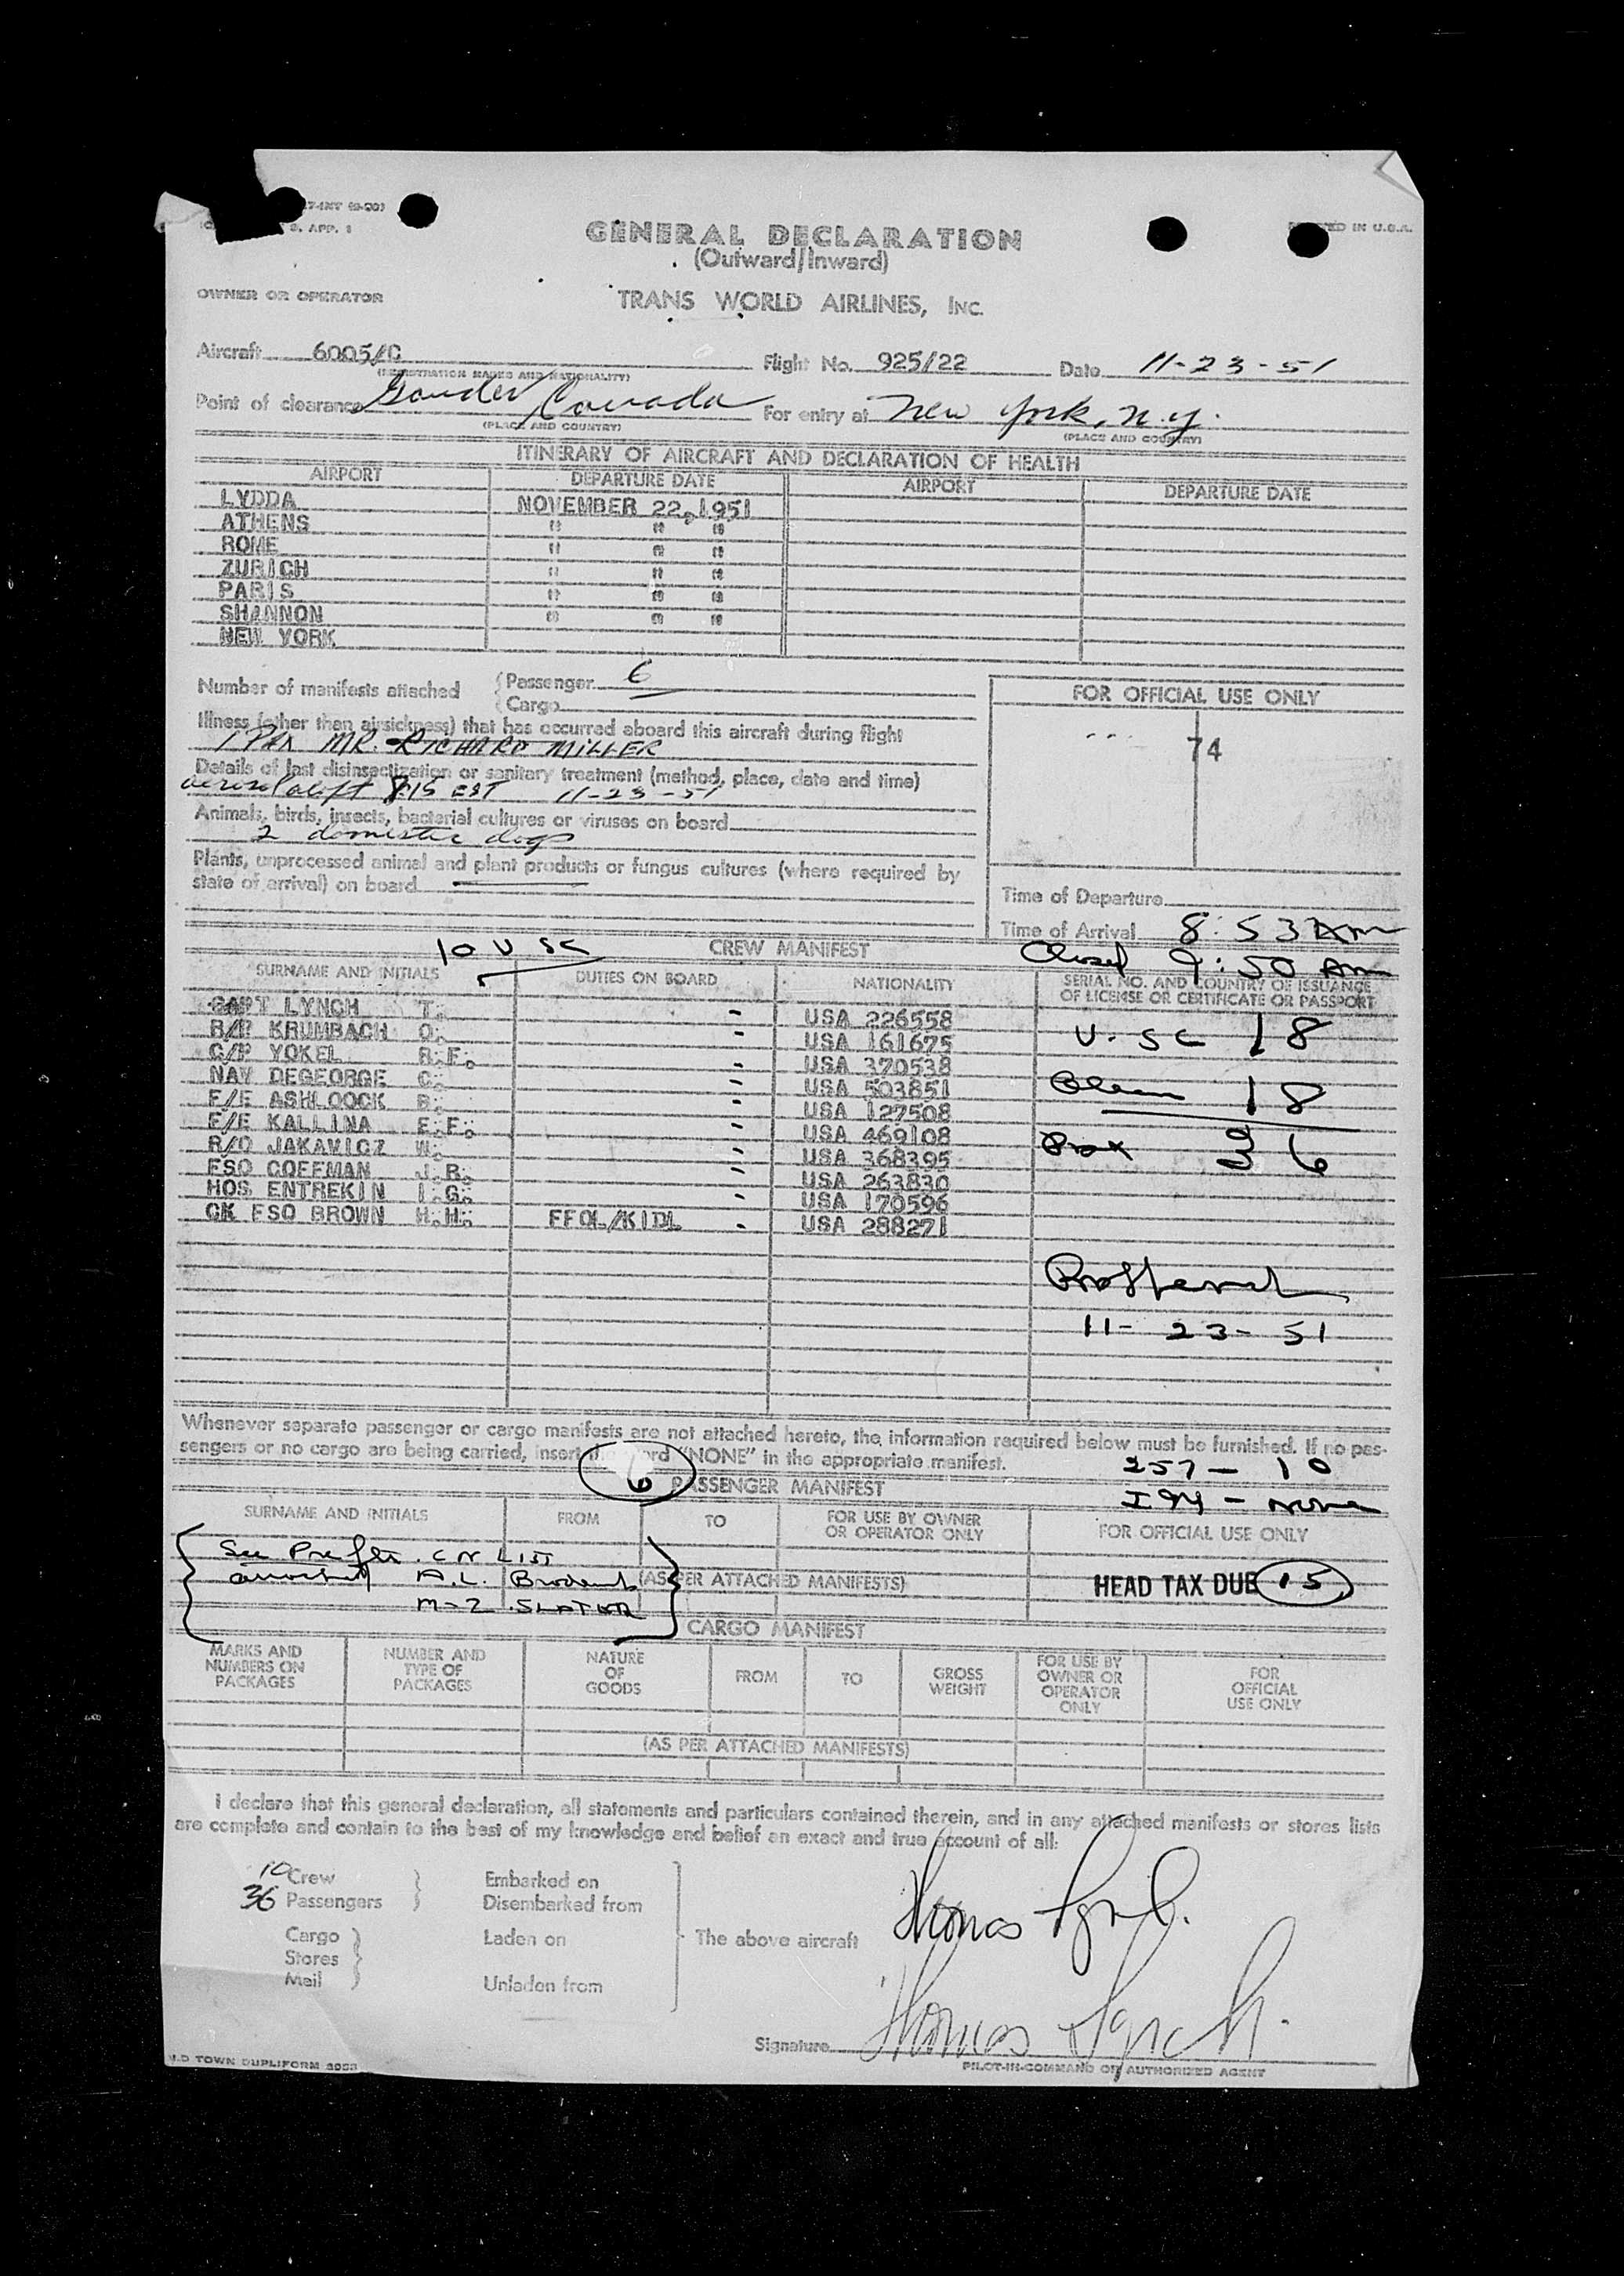 7-INT (9-50)
9. APP. 1
GENERAL DECLARATION
(Outward/Inward)
IN U.S.A.
OWNER OR OPERATOR
TRANS WORLD AIRLINES, INC.
Aircraft 6005/C Flight No. 925/22 Date 11-23-51
(REGISTRATION MARKS AND NATIONALITY)
Point of clearance Gander Canada For entry at New York, N.Y.
(PLACE AND COUNTRY) (PLACE AND COUNTRY)
ITINERARY OF AIRCRAFT AND DECLARATION OF HEALTH
AIRPORT DEPARTURE DATE AIRPORT DEPARTURE DATE
LYDDA NOVEMBER 22, 1951
ATHENS " " "
ROME " " "
ZURICH " " "
PARIS " " "
SHANNON " " "
NEW YORK
Number of manifests attached Passenger 6
Cargo
FOR OFFICIAL USE ONLY
74
Illness (other than airsickness) that has occurred aboard this aircraft during flight
1 PAX MR. RICHARD MILLER
Details of last disinsectization or sanitary treatment (method, place, date and time)
aerosol aloft 8:15 EST 11-23-51
Animals, birds, insects, bacterial cultures or viruses on board
2 domestic dogs
Plants, unprocessed animal and plant products or fungus cultures (where required by
state of arrival) on board
Time of Departure
Time of Arrival 8:53 Am
Closed 9:50 Am
10 U SC
CREW MANIFEST
SURNAME AND INITIALS DUTIES ON BOARD NATIONALITY SERIAL NO. AND COUNTRY OF ISSUANCE
OF LICENSE OR CERTIFICATE OR PASSPORT
CAPT LYNCH T. - USA 226558
R/P KRUMBACH O. - USA 161675
C/P YOKEL R.F. - USA 370538
NAV DEGEORGE C. - USA 503851
F/E ASHLOOCK B. - USA 127508
F/E KALLINA E.F. - USA 469108
R/O JAKAVICZ W. - USA 368395
FSO COFFMAN J.R. - USA 263830
HOS ENTREKIN I.G. - USA 170596
CK FSO BROWN H.H. FFOL/KIDL - USA 288271
U. SC 18
Alien 18
Pax 36
Proffered
11-23-51
Whenever separate passenger or cargo manifests are not attached hereto, the information required below must be furnished. If no pas-
sengers or no cargo are being carried, insert the word "NONE" in the appropriate manifest.
257 - 10
I 94 - None
6
PASSENGER MANIFEST
SURNAME AND INITIALS FROM TO FOR USE BY OWNER
OR OPERATOR ONLY FOR OFFICIAL USE ONLY
See LIST
A.L.
(AS PER ATTACHED MANIFESTS)
M-2 SLATER
HEAD TAX DUE 15
CARGO MANIFEST
MARKS AND
NUMBERS ON
PACKAGES
NUMBER AND
TYPE OF
PACKAGES
NATURE
OF
GOODS
FROM
TO
GROSS
WEIGHT
FOR USE BY
OWNER OR
OPERATOR
ONLY
FOR
OFFICIAL
USE ONLY
(AS PER ATTACHED MANIFESTS)
I declare that this general declaration, all statements and particulars contained therein, and in any attached manifests or stores lists
are complete and contain to the best of my knowledge and belief an exact and true account of all:
10 Crew Embarked on
36 Passengers Disembarked from
Cargo Laden on
Stores
Mail Unladen from
The above aircraft Thomas Lynch.
Signature Thomas Lynch.
PILOT-IN-COMMAND OR AUTHORIZED AGENT
TOWN DUPLIFORM